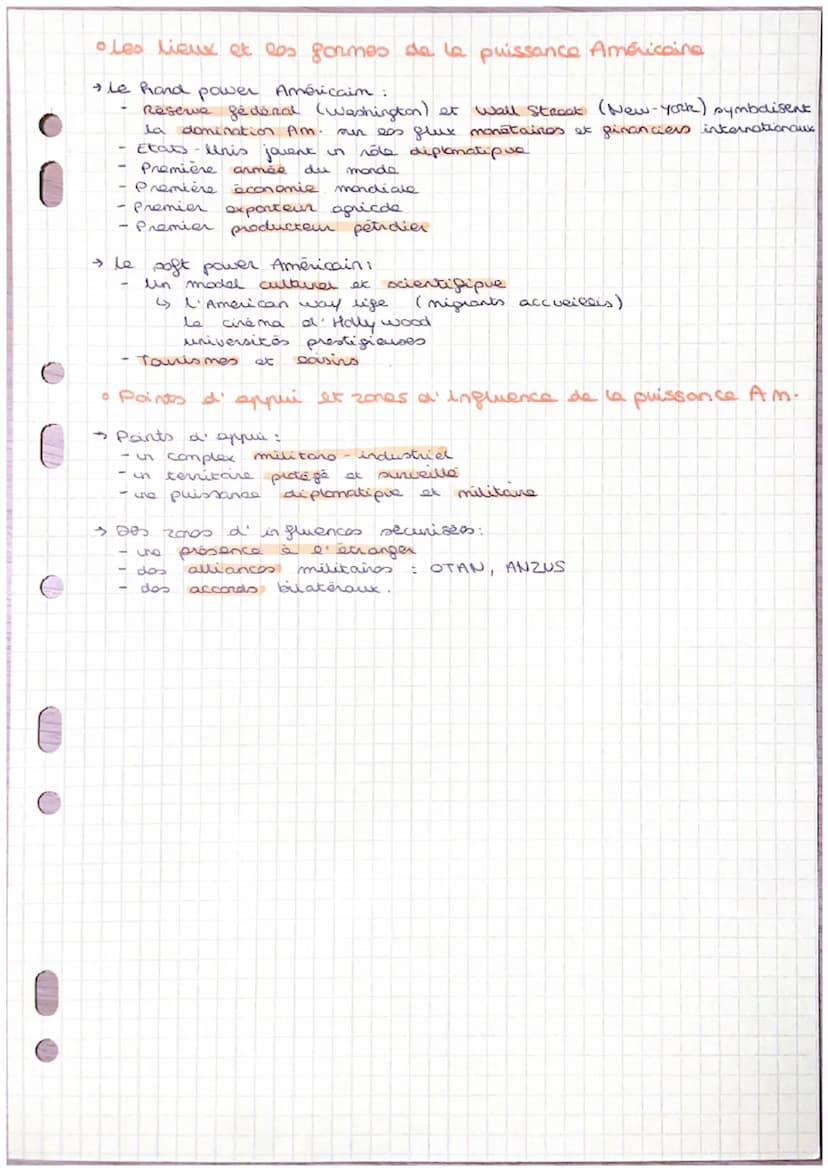 • Les lieux et les formes de la puissance Américaine
→ Le hard power Américain :
- Réserve fédéral (Washington) et Wall Street (New-York) symbolisent
la domination Am. sur les flux monétaires et financiers internationaux
- Etats-Unis jouent un rôle diplomatique
- Première armée du monde
- Première économie mondiale
- Premier exporteur agricole
- Premier producteur pétrolier
→ Le soft power Américain :
- Un model culturel et scientifique
↳ L'American way life (migrants accueillis)
Le cinéma d'Hollywood
universités prestigieuses
- Tourismes et loisirs
• Points d'appui et zones d'influence de la puissance Am.
→ Points d'appui :
- un complex militaro-industriel
- un territoire protégé et surveillé
- une puissance diplomatique et militaire
→ Des zones d'influences sécurisés :
- une présence à l'étranger
- des alliances militaires : OTAN, ANZUS
- des accords bilatéraux.